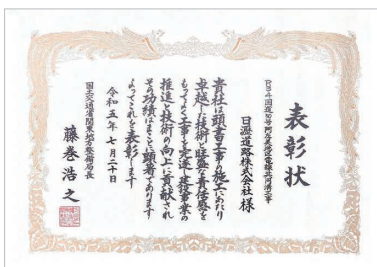 表彰状
R3・4国道50号阿左美地区電線共同溝工事
日瀝道路株式会社 様
貴社は頭書工事の施工にあたり
卓越した技術と旺盛な責任感を
もってよく工事を完遂し建設事業の
推進と技術の向上に貢献され
その功績はまことに顕著であります
よってこれを表彰します
令和五年七月二十日
国土交通省関東地方整備局長
藤巻浩之